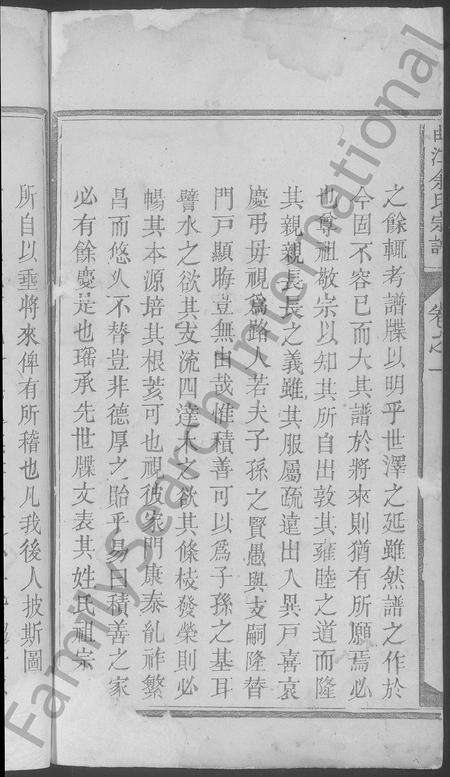 曲江余氏宗譜
卷之一
之餘輒考譜牒以明乎世澤之延雖然譜之作於
今固不容已而大其譜於將來則猶有所願焉必
也尊祖敬宗以知其所自出敦其雍睦之道而隆
其親親長長之義雖其服屬疏遠出入異戶喜哀
慶弔毋視爲路人若夫子孫之賢愚與支嗣隆替
門戶顯晦豈無由哉惟積善可以爲子孫之基耳
譬水之欲其支流四達木之欲其條枝發榮則必
暢其本源培其根荄可也視彼家門康泰胤祚繁
昌而悠久不替豈非德厚之貽乎易曰積善之家
必有餘慶是也瑤承先世牒文表其姓氏祖宗
所自以垂將來俾有所稽也凡我後人披斯圖
FamilySearch International